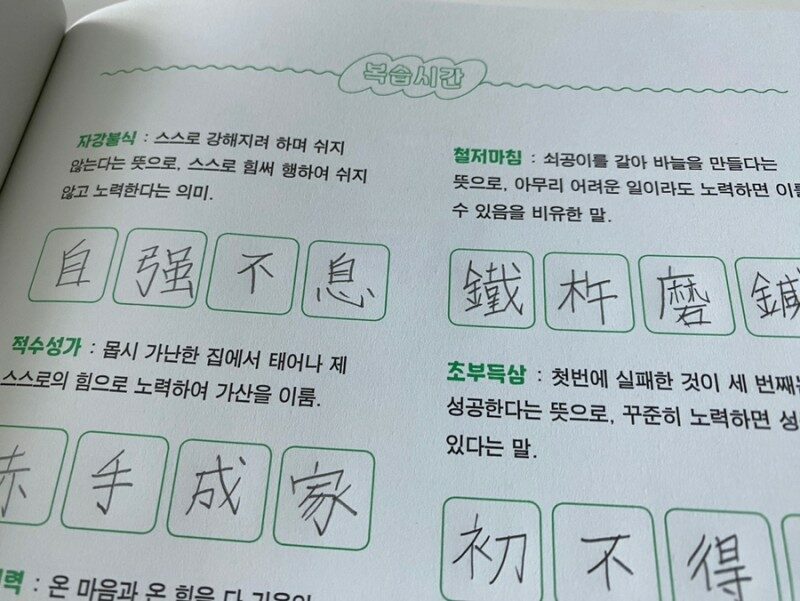 복습시간
자강불식 : 스스로 강해지려 하며 쉬지
않는다는 뜻으로, 스스로 힘써 행하여 쉬지
않고 노력한다는 의미.
自强不息
적수성가 : 몹시 가난한 집에서 태어나 제
스스로의 힘으로 노력하여 가산을 이룸.
赤手成家
력 : 온 마음과 온 힘을 다
철저마침 : 쇠공이를 갈아 바늘을 만들다는
뜻으로, 아무리 어려운 일이라도 노력하면 이룰
수 있음을 비유한 말.
鐵杵磨鍼
초부득삼 : 첫번에 실패한 것이 세 번째는
성공한다는 뜻으로, 꾸준히 노력하면 성
있다는 말.
初不得